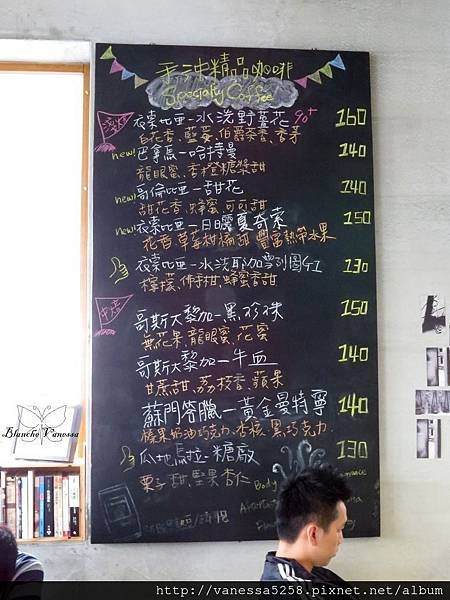 手沖精品咖啡
Specialty Coffee
淺焙
衣索比亞-水洗野薑花 90+ 160
白花香、藍莓、伯爵茶香、香茅
new! 巴拿馬-哈特曼 140
龍眼蜜、香橙糖漿甜
new! 哥倫比亞-甜花 140
甜花香、蜂蜜、可可甜
new! 衣索比亞-日曬夏奇索 150
花香、草莓柑橘甜、豐富熱帶水果
衣索比亞-水洗耶加雪列圖G1 130
檸檬、佛手柑、蜂蜜香甜
中焙
哥斯大黎加-黑珍珠 150
無花果、龍眼蜜、花蜜
哥斯大黎加-牛血 140
甘蔗甜、荔枝香、蘋果
蘇門答臘-黃金曼特寧 140
榛果奶油巧克力、杏核、黑巧克力
瓜地馬拉-糖廠 130
栗子甜、堅果杏仁
Body
Blanche Vanessa
http://vanessa5258.pixnet.net/album